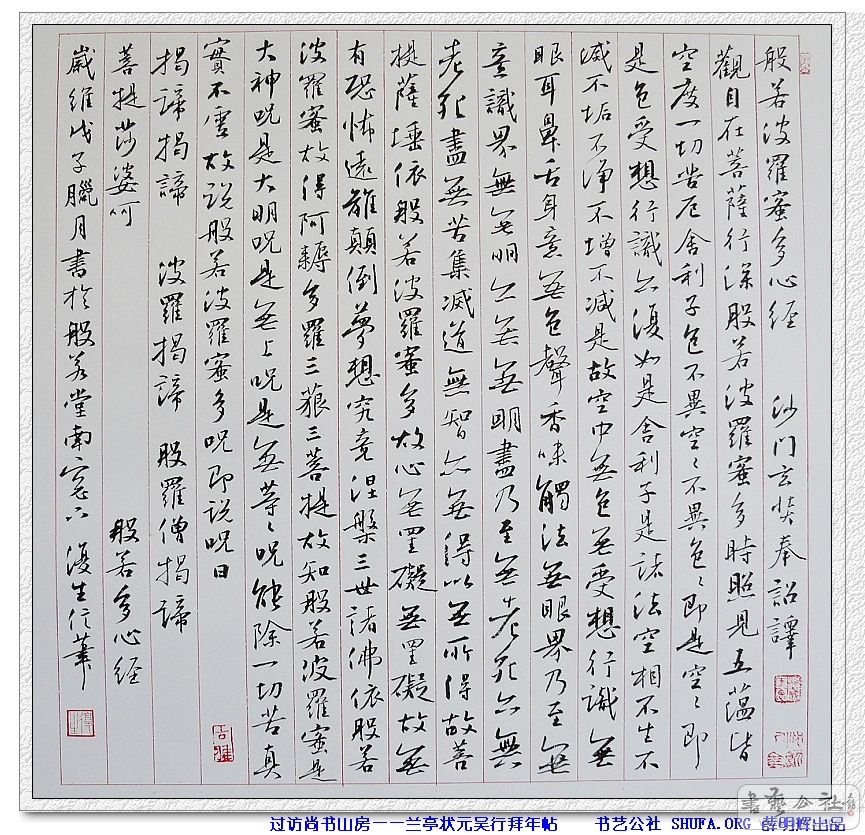 般若波羅蜜多心経　沙門玄奘奉詔譯
觀自在菩薩行深般若波羅蜜多時照見五蘊皆
空度一切苦厄舍利子色不異空〻不異色〻即是空〻即
是色受想行識亦復如是舍利子是諸法空相不生不
滅不垢不淨不增不減是故空中無色無受想行識無
眼耳鼻舌身意無色聲香味觸法無眼界乃至無
意識界無無明亦無無明盡乃至無老死亦無
老死盡無苦集滅道無智亦無得以無所得故菩
提薩埵依般若波羅蜜多故心無罣礙無罣礙故無
有恐怖遠離顛倒夢想究竟涅槃三世諸佛依般若
波羅蜜故得阿耨多羅三藐三菩提故知般若波羅蜜是
大神呪是大明呪是無上呪是無等〻呪能除一切苦真
實不虛故說般若波羅蜜多呪即說呪曰
揭諦揭諦　波羅揭諦　般羅僧揭諦
菩提莎婆呵　般若多心経
歲維戊子臘月書於般若堂南窗下　復生信筆
書藝公社
过访尚书山房——兰亭状元吴行拜年帖　书艺公社 SHUFA.ORG 薛明辉出品